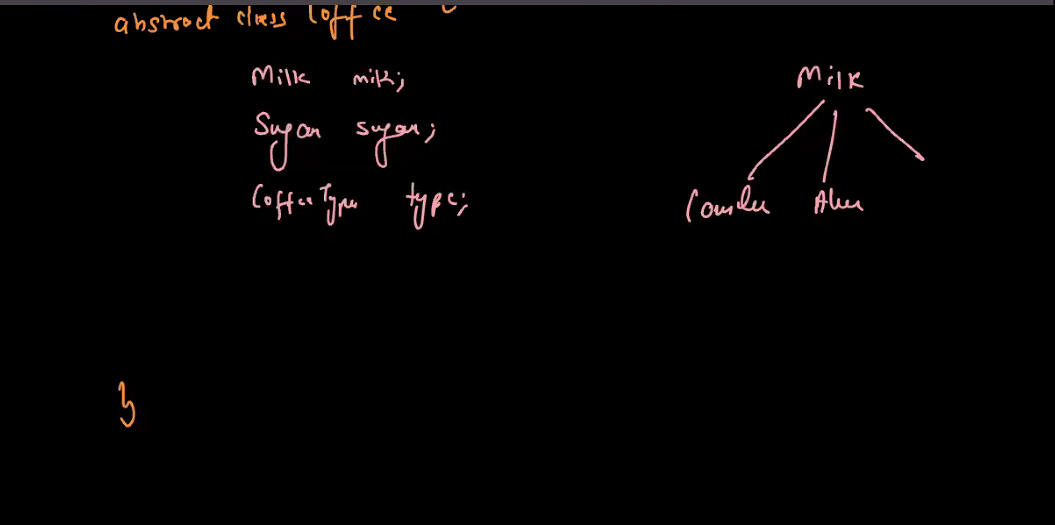 abstract class Coffee {
Milk milk;
Sugar sugar;
CoffeeType type;
}
Milk